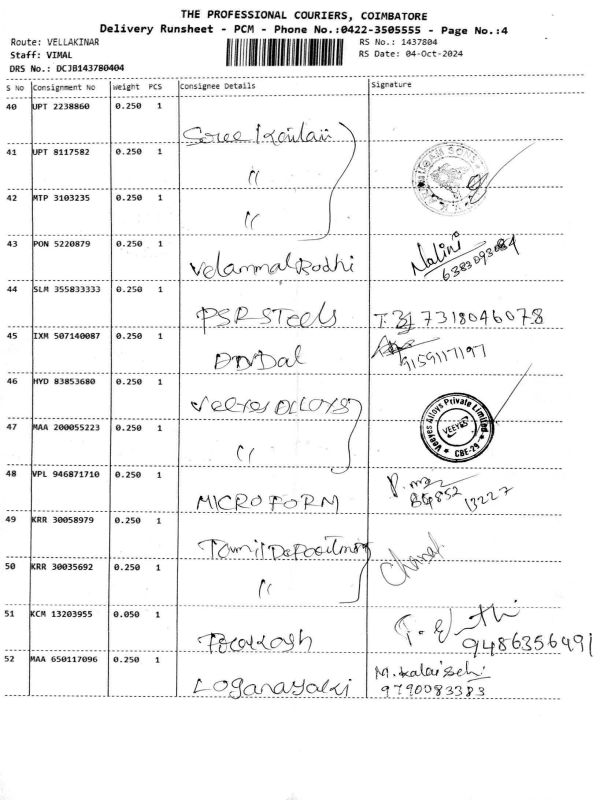 THE PROFESSIONAL COURIERS, COIMBATORE
Delivery Runsheet - PCM - Phone No.:0422-3505555 - Page No.:4
Route: VELLAKINAR RS No.: 1437804
Staff: VIMAL RS Date: 04-Oct-2024
DRS No.: DCJB143780404
S No Consignment No Weight PCS Consignee Details Signature
40 UPT 2238860 0.250 1
41 UPT 8117582 0.250 1 "
42 MTP 3103235 0.250 1 "
43 PON 5220879 0.250 1 Velammal Bodhi Nalini 6383093084
44 SLM 355833333 0.250 1 PSR STeels 7318046078
45 IXM 507140087 0.250 1 9159117197
46 HYD 83853680 0.250 1 Veeyes ALLOYS
47 MAA 200055223 0.250 1 " Veeyes Alloys Private Limited VEEYES CBE-29
48 VPL 946871710 0.250 1 MICROFORM 13227
49 KRR 30058979 0.250 1
50 KRR 30035692 0.250 1 "
51 KCM 13203955 0.050 1 9486356491
52 MAA 650117096 0.250 1 Loganayaki M. Kalaiselvi
9790083383